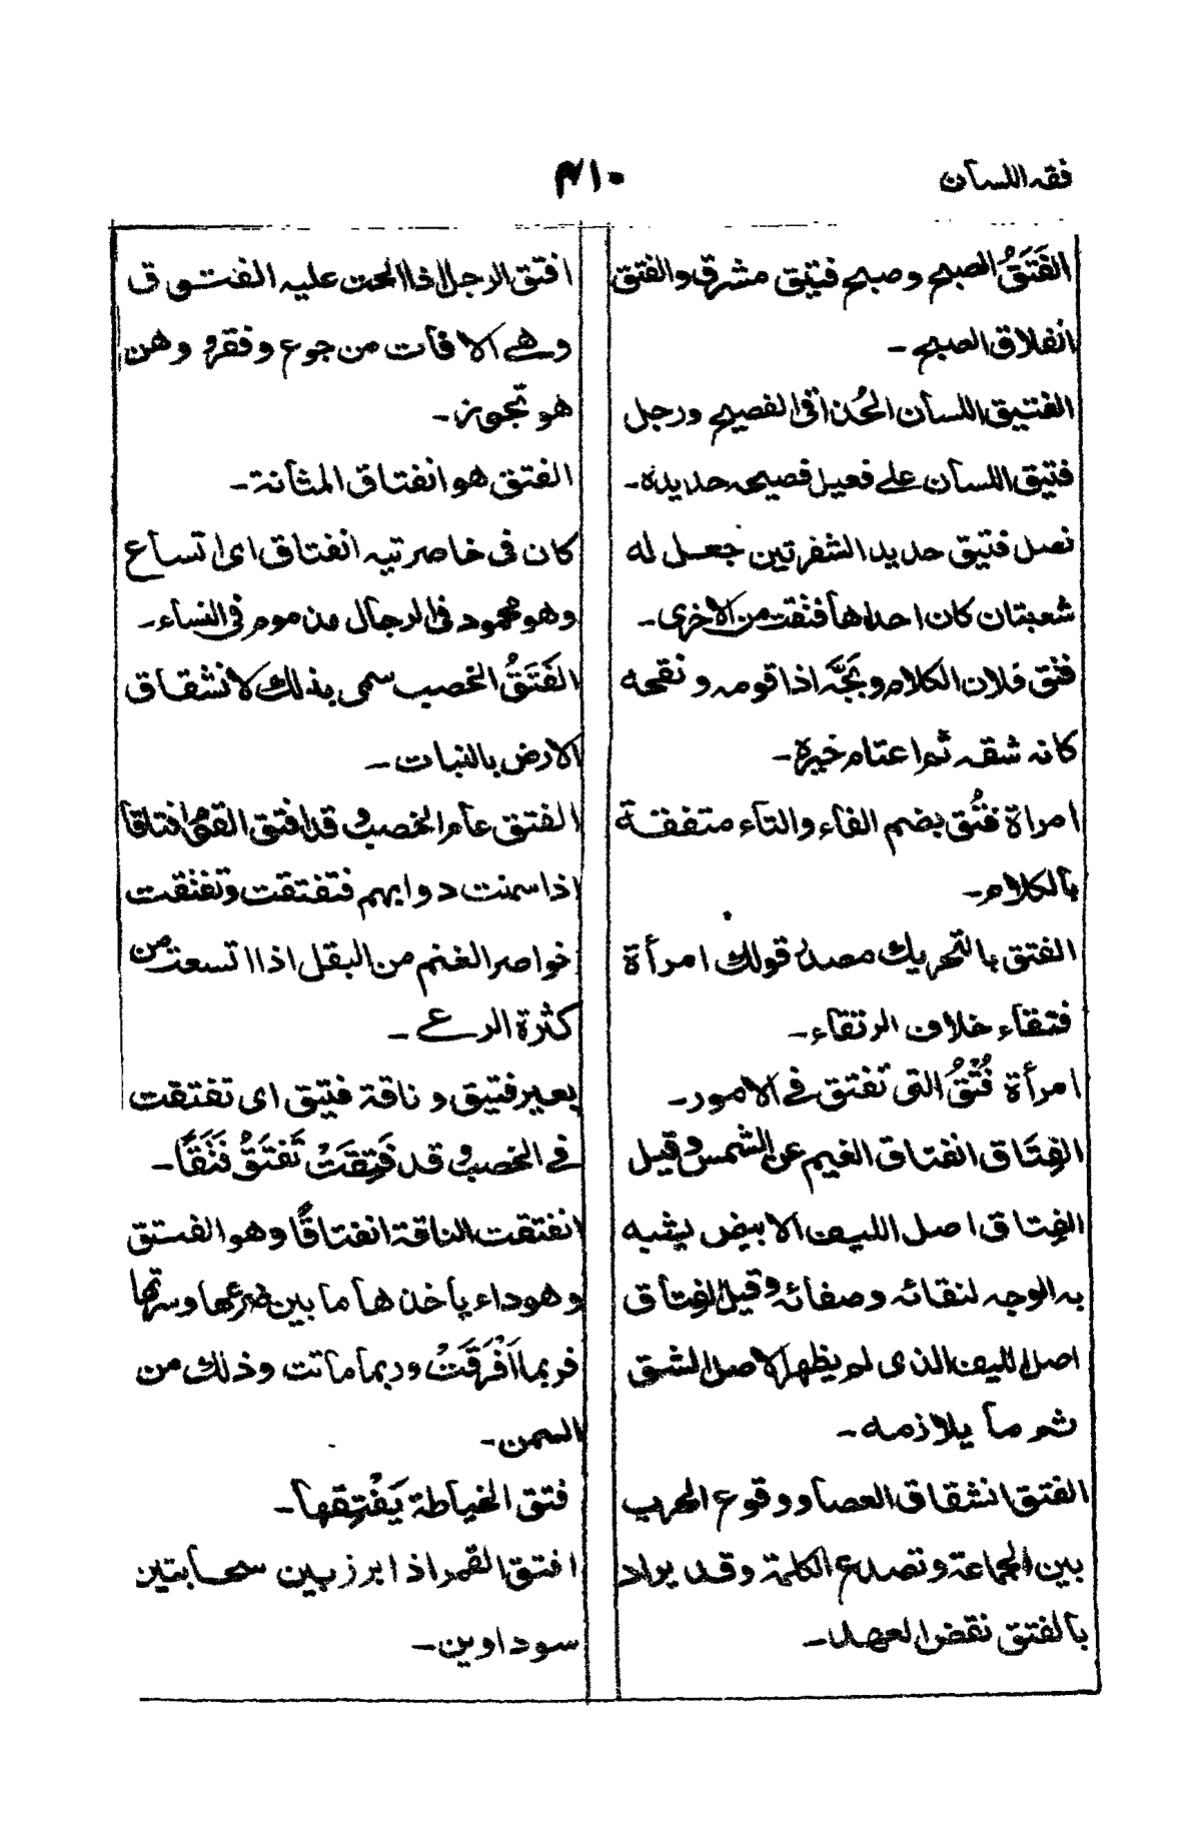 فقه اللسان
٣١٠
الفَتَقُ الصبح وصبح فتيق مشرق والفتق
انفلاق الصبح ۔
الفتيق اللسان الحُذاقى الفصيح ورجل
فتيق اللسان على فعيل فصيحه حديده ۔
نصل فتيق حديد الشفرتين جعل له
شعبتان كان احداها فتقت من الاخرى ۔
فتق فلان الكلام وبجّه اذا قومه ونقحه
كانه شقه ثم اعتام خيره ۔
امراة فتُق بضم الفاء والتاء متفقة
بالكلام ۔
الفتق بالتحريك مصدر قولك امرأة
فتقاء خلاف الرتقاء ۔
امرأة فُتُقُ التى تفتق فى الامور ۔
الفِتَاق انفتاق الغيم عن الشمس وقيل
الفِتاق اصل الليف الابيض يشبه
به الوجه لنقائه وصفائه وقيل الفتاق
اصل الليف الذى لم يظهر الاصل الشق
ثم ما يلازمه ۔
الفتق انشقاق العصا ووقوع الحرب
بين الجماعة وتصدع الكلمة وقد يراد
بالفتق نقض العهد ۔
افتق الرجل اذا الحت عليه الفتوق
وهى الافات من جوع وفقر و وهن
هو تجوز ۔
الفتق هو انفتاق المثانة ۔
كان فى خاصرتيه انفتاق اى اتساع
وهو محمود فى الرجال مذموم فى النساء ۔
الفَتَقُ الخصب سمى بذلك لانشقاق
الارض بالنبات ۔
الفتق عام الخصب و قد افتق القوم افتاقا
اذا سمنت دوابهم فتفتقت وتفتقت
خواصر الغنم من البقل اذا اتسعت من
كثرة الرعى ۔
بعير فتيق و ناقة فتيق اى تفتقت
فى الخصب و قد فَتِقَتْ تَفتَقُ فَتَقًا ۔
انفتقت الناقة انفتاقًا وهو الفتق
وهو داء ياخذها ما بين ضرعها وسرتها
فربما اَفْرَقَتْ وربما ماتت وذلك من
السمن ۔
فتق الخياطة يَفْتِقها ۔
افتق القمر اذا برز بين سحابتين
سوداوين ۔